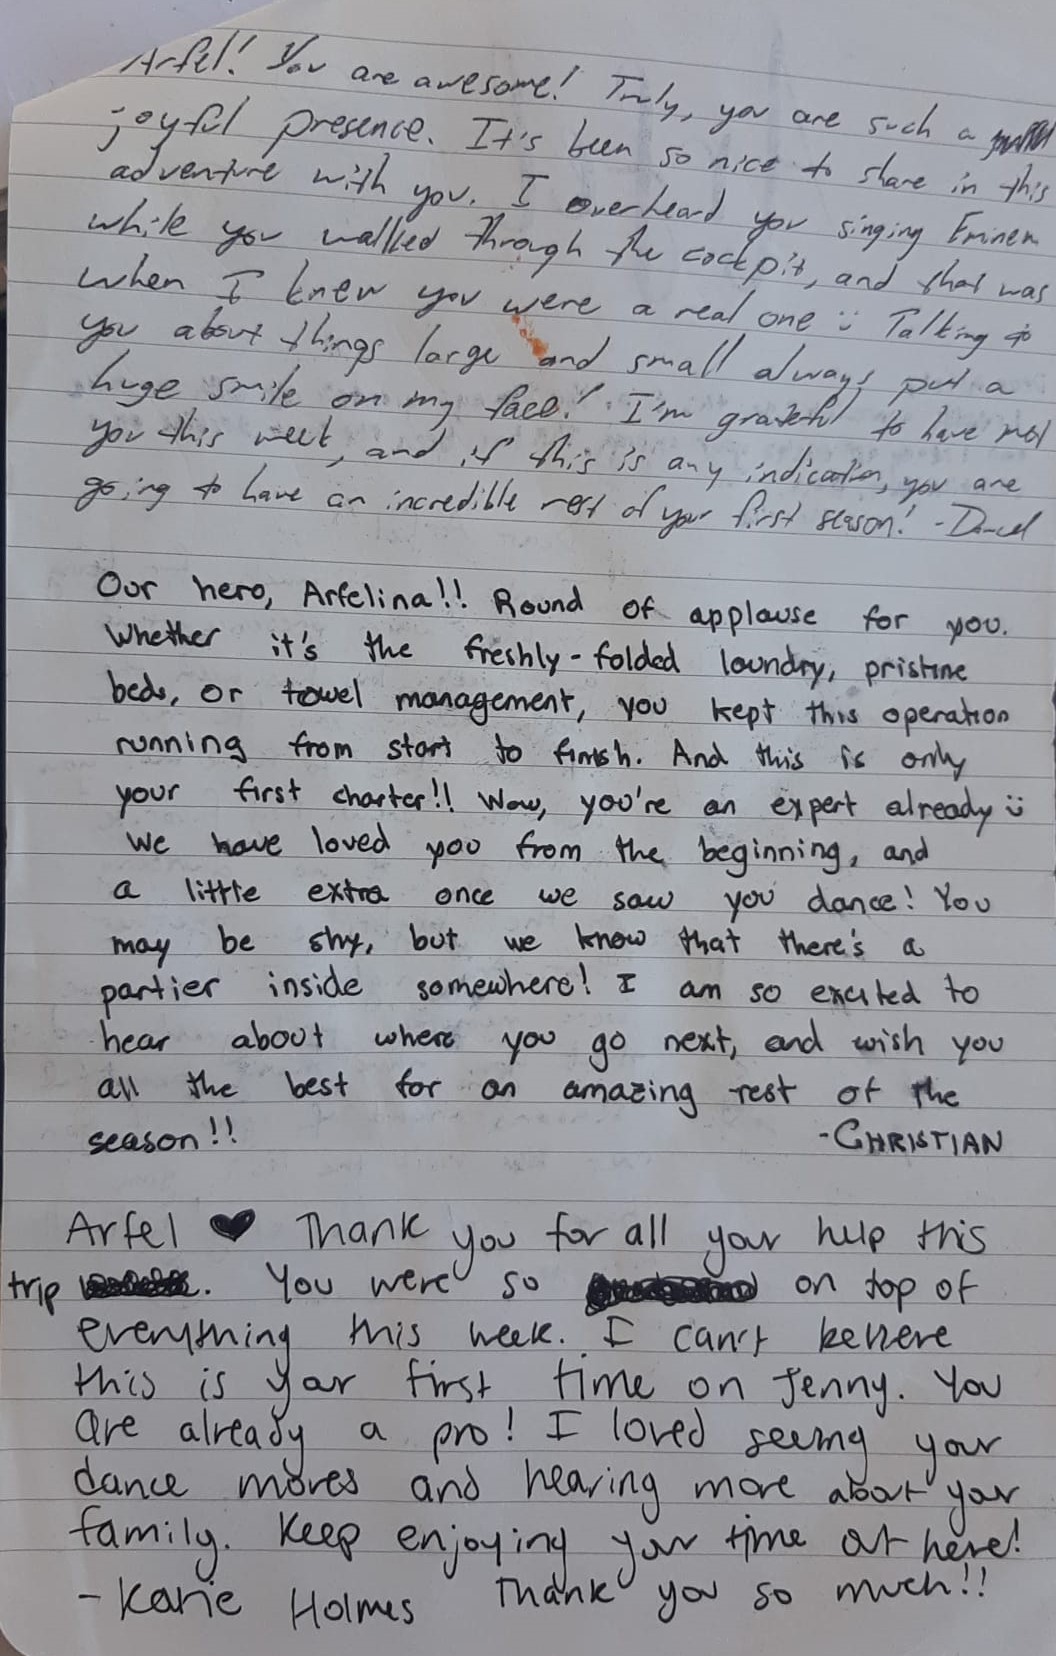 Arfel! You are awesome! Truly, you are such a
joyful presence. It's been so nice to share in this
adventure with you. I overheard you singing Eminem
while you walked through the cockpit, and that was
when I knew you were a real one :) Talking to
you about things large and small always put a
huge smile on my face! I'm grateful to have met
you this week, and if this is any indication, you are
going to have an incredible rest of your first season! -
Our hero, Arfelina!! Round of applause for you.
Whether it's the freshly-folded laundry, pristine
beds, or towel management, you kept this operation
running from start to finish. And this is only
your first charter!! Wow, you're an expert already :)
We have loved you from the beginning, and
a little extra once we saw you dance! You
may be shy, but we know that there's a
partier inside somewhere! I am so excited to
hear about where you go next, and wish you
all the best for an amazing rest of the
season!! -CHRISTIAN
Arfel ♥ Thank you for all your help this
trip. You were so on top of
everything this week. I can't believe
this is your first time on Jenny. You
are already a pro! I loved seeing your
dance moves and hearing more about your
family. Keep enjoying your time out here!
- Katie Holmes Thank you so much!!